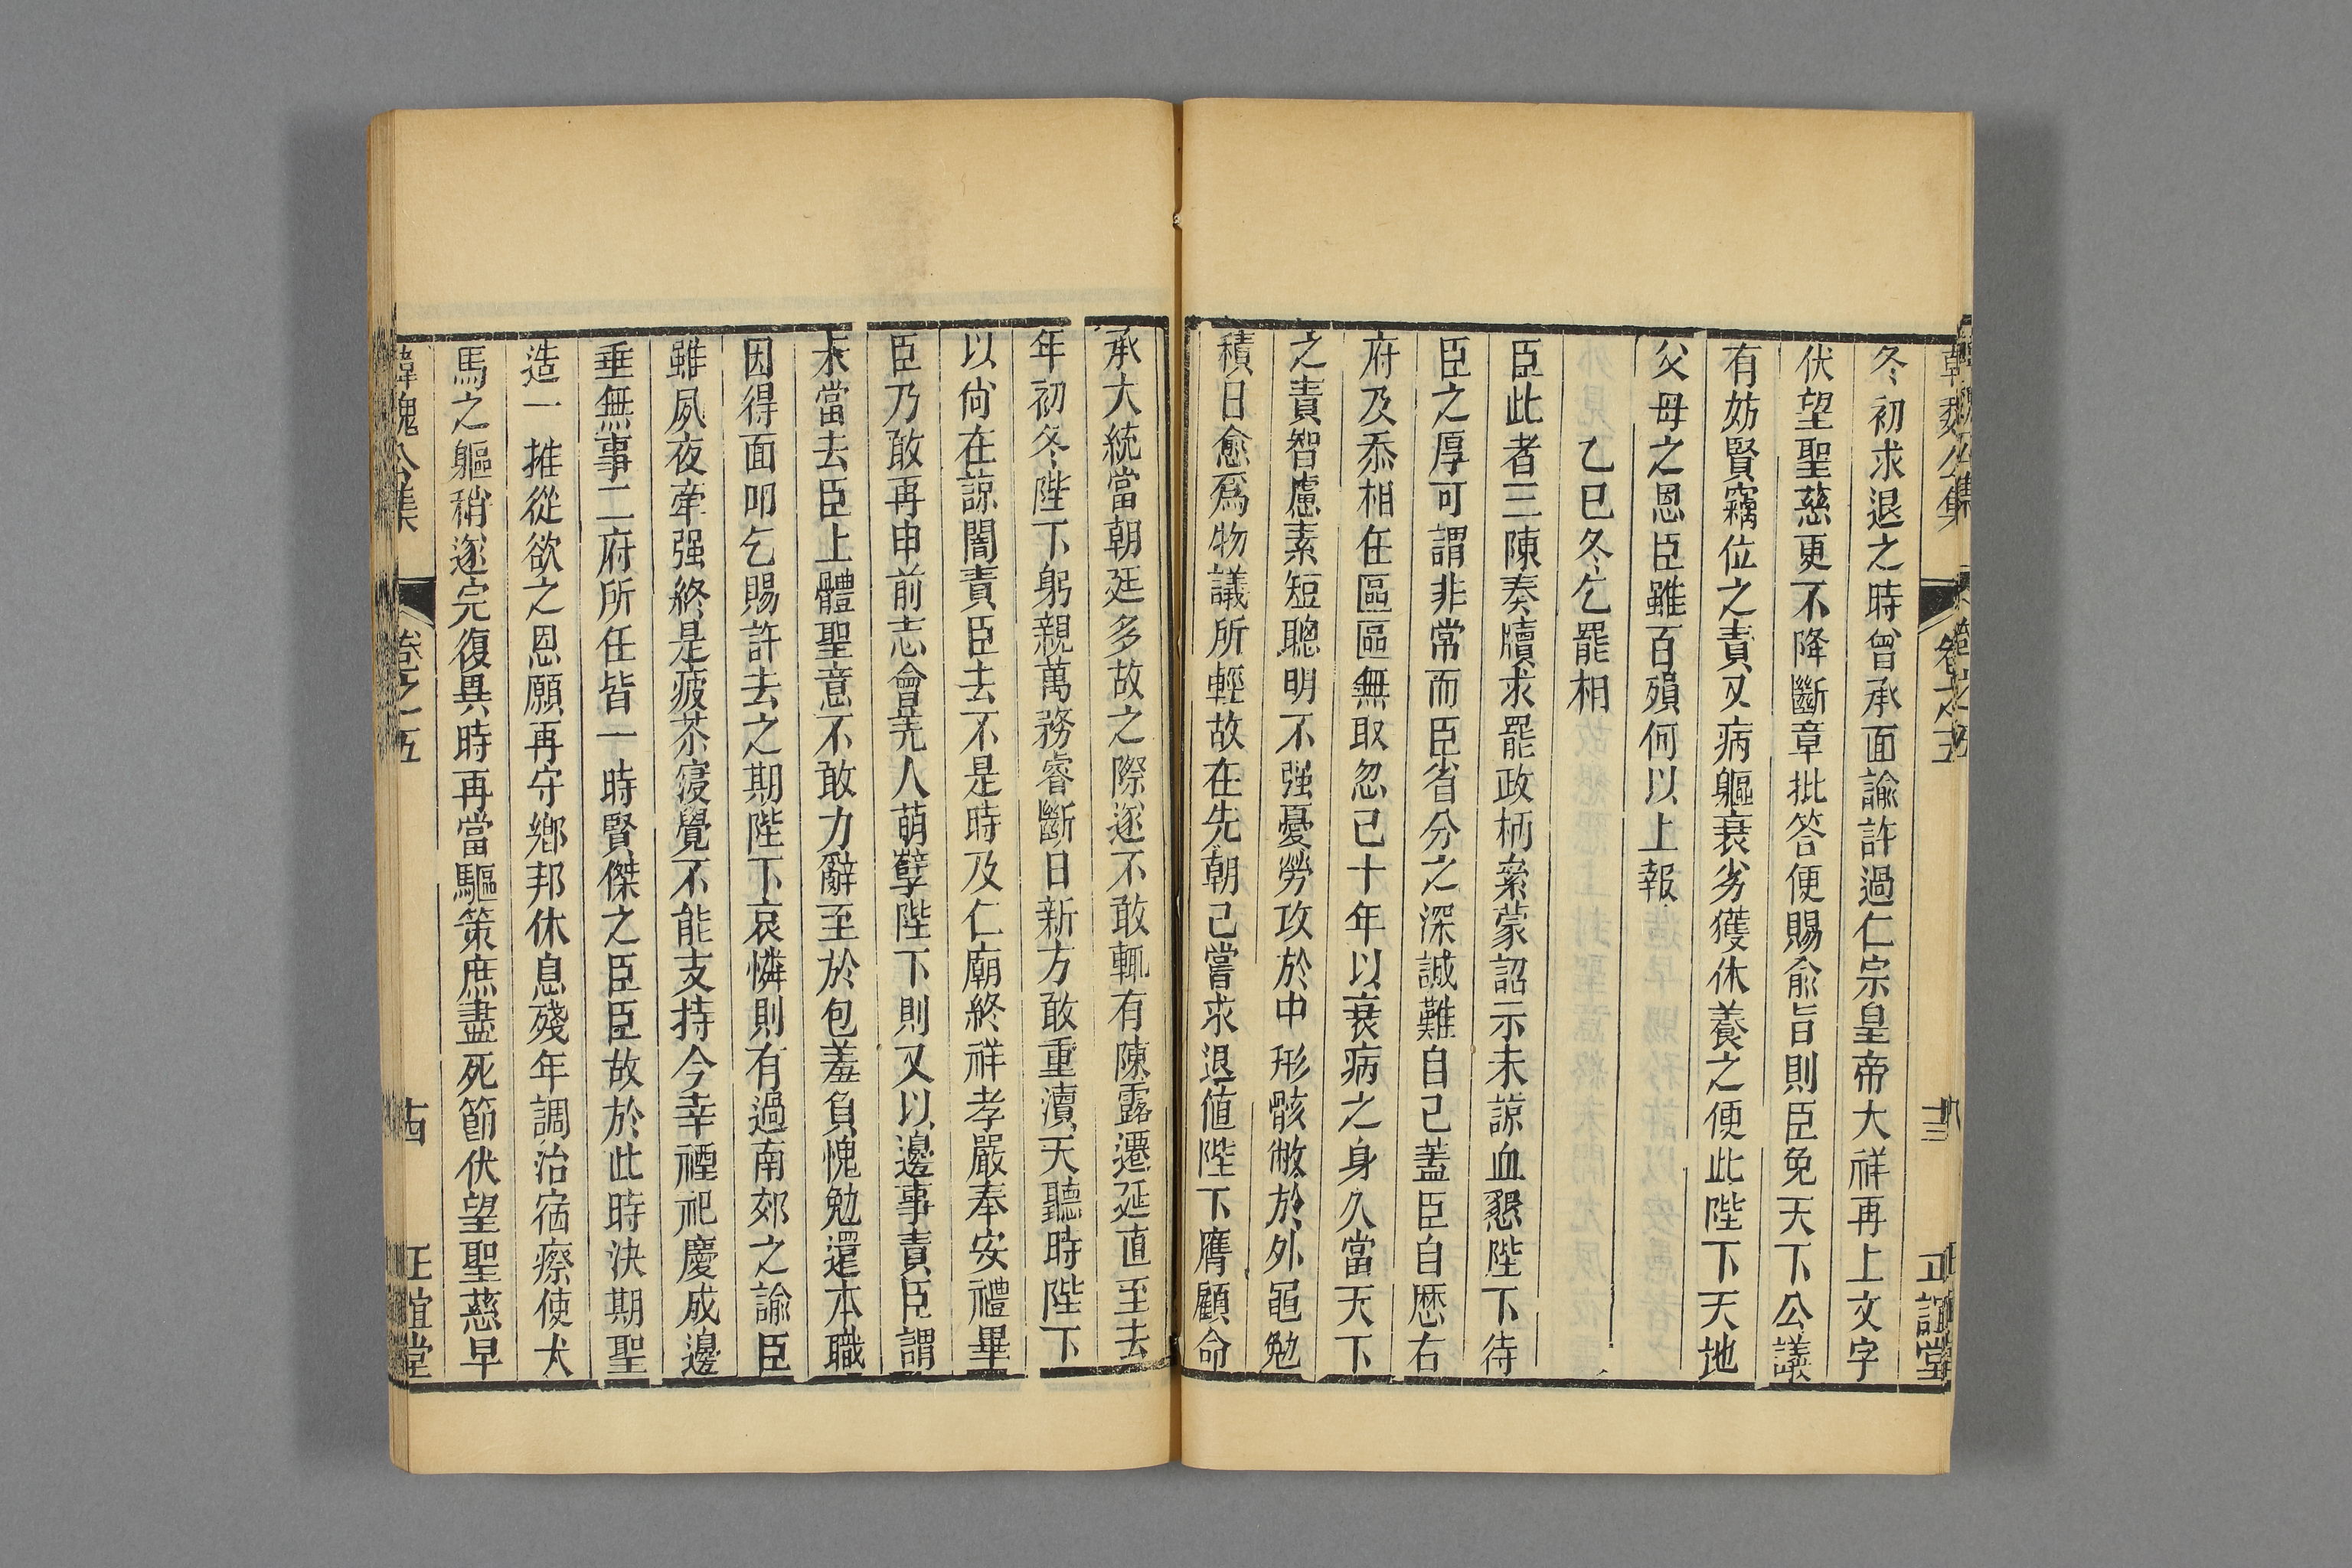 韓魏公集 卷之五 十三 正誼堂
冬初求退之時曾承面諭許過仁宗皇帝大祥再上文字
伏望聖慈更不降斷章批答便賜俞旨則臣免天下公議
有妨賢竊位之責又病軀衰劣獲休養之便此陛下天地
父母之恩臣雖百殞何以上報
乙巳冬乞罷相
臣此者三陳奏牘求罷政柄累蒙詔示未諒血懇陛下待
臣之厚可謂非常而臣省分之深誠難自己蓋臣自歷右
府及忝相任區區無取忽已十年以衰病之身久當天下
之責智慮素短聰明不强憂勞攻於中形骸敝於外黽勉
積日愈爲物議所輕故在先朝已嘗求退値陛下膺顧命
承大統當朝廷多故之際遂不敢輒有陳露遷延直至去
年初冬陛下躬親萬務睿斷日新方敢重瀆天聽時陛下
以尚在諒闇責臣去不是時及仁廟終祥孝嚴奉安禮畢
臣乃敢再申前志會羌人萌孽陛下則又以邊事責臣謂
未當去臣上體聖意不敢力辭至於包羞負愧勉還本職
因得面叩乞賜許去之期陛下哀憐則有過南郊之諭臣
雖夙夜牽强終是疲苶寖覺不能支持今幸禋祀慶成邊
垂無事二府所任皆一時賢傑之臣臣故於此時決期聖
造一推從欲之恩願再守鄉邦休息殘年調治宿瘵使犬
馬之軀稍遂完復異時再當驅策庶盡死節伏望聖慈早
韓魏公集 卷之五 十四 正誼堂